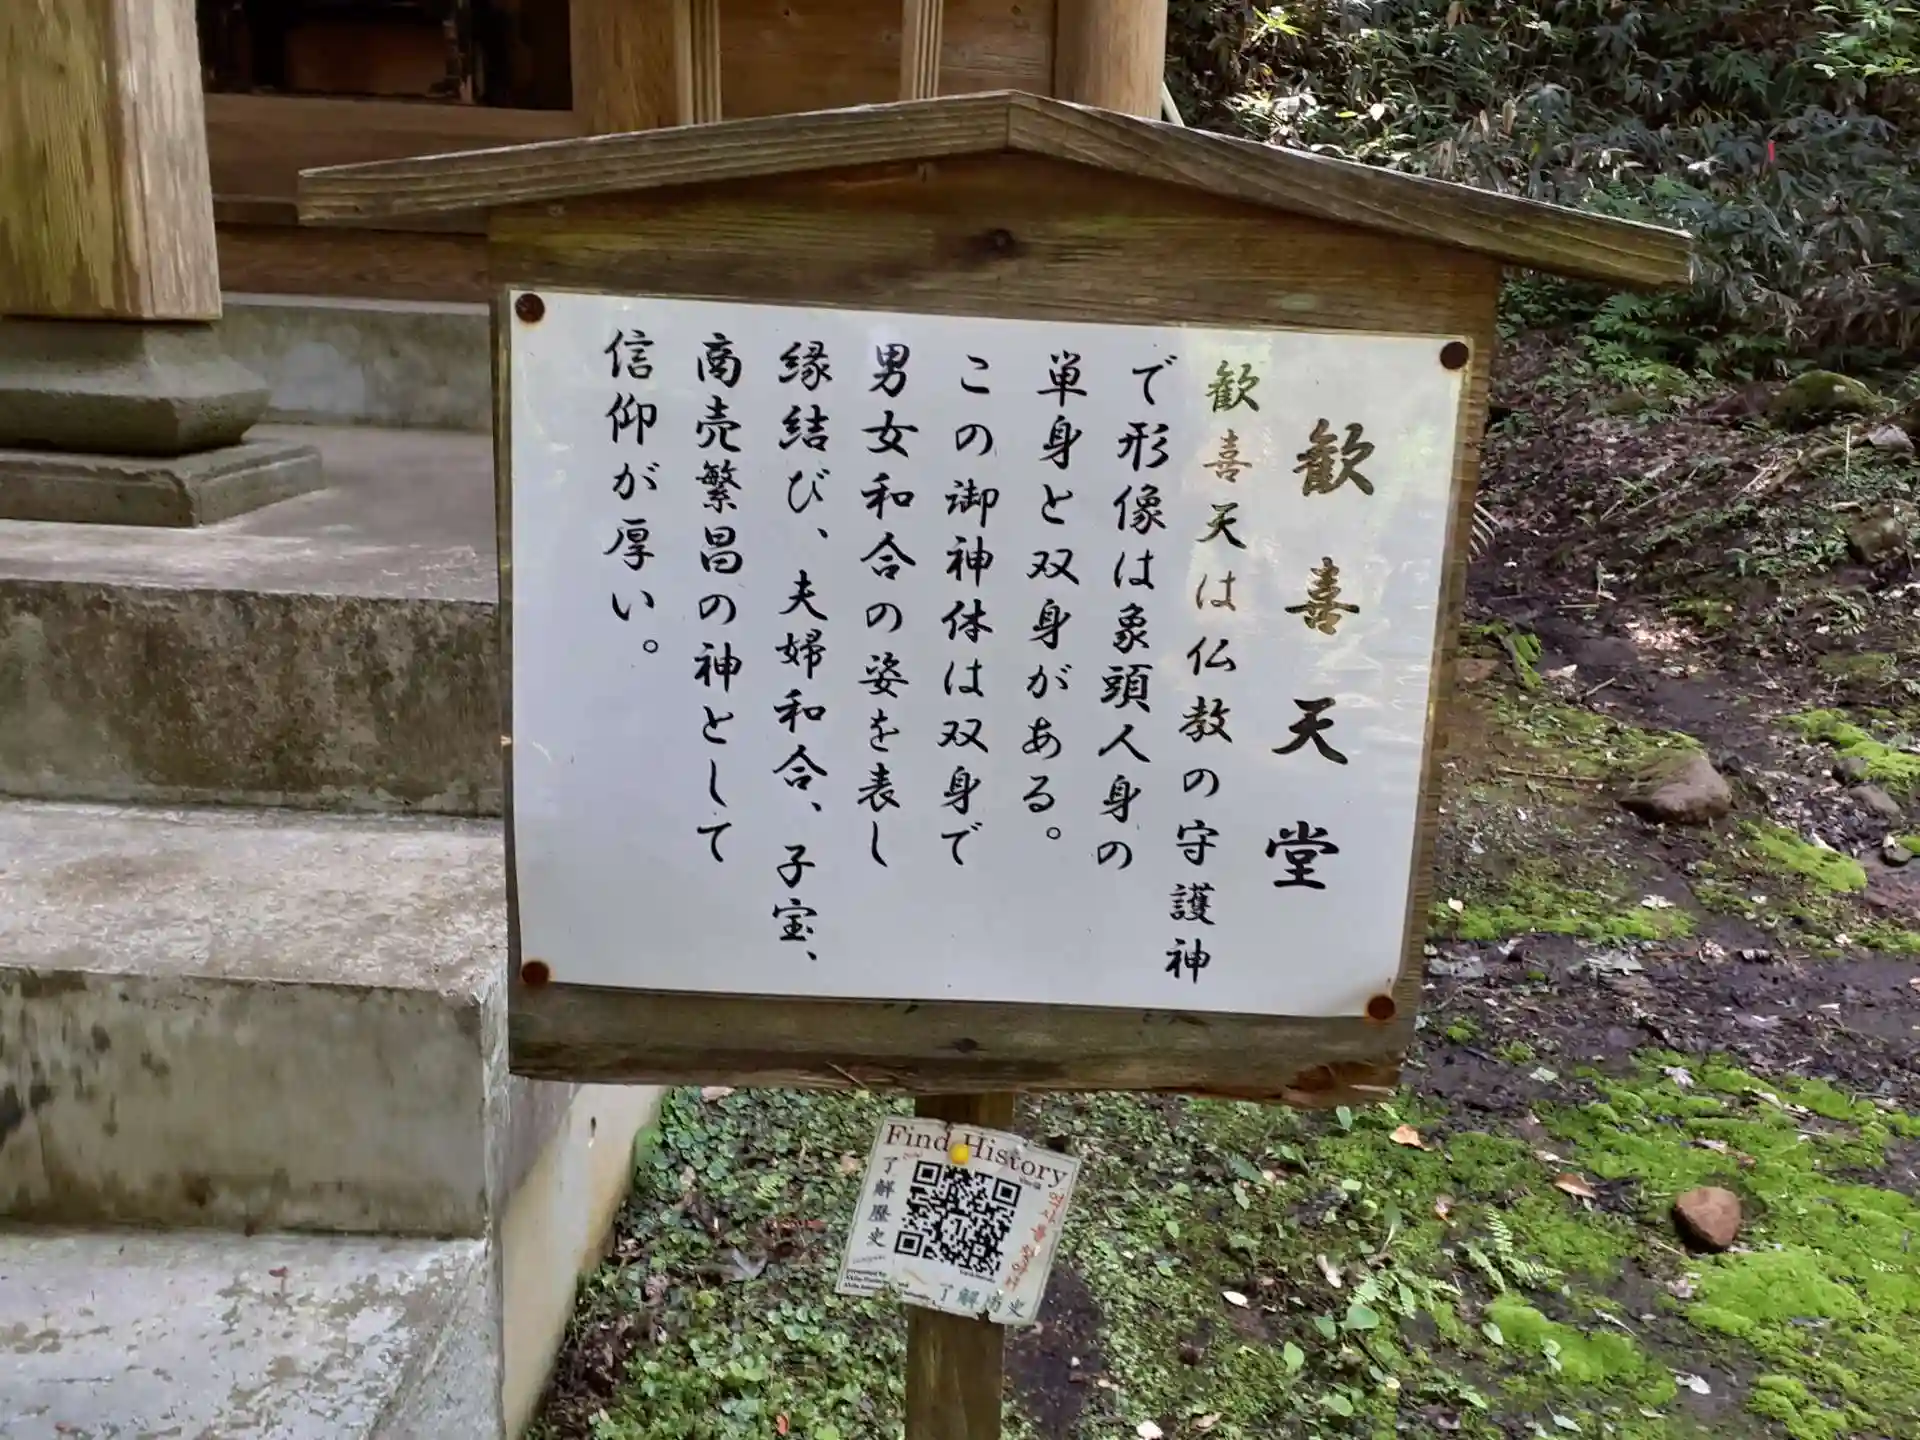 歓喜天堂
歓喜天は仏教の守護神
で形像は象頭人身の
単身と双身がある。
この御神体は双身で
男女和合の姿を表し
縁結び、夫婦和合、子宝、
商売繁昌の神として
信仰が厚い。
Find History
了解歴史
了解历史